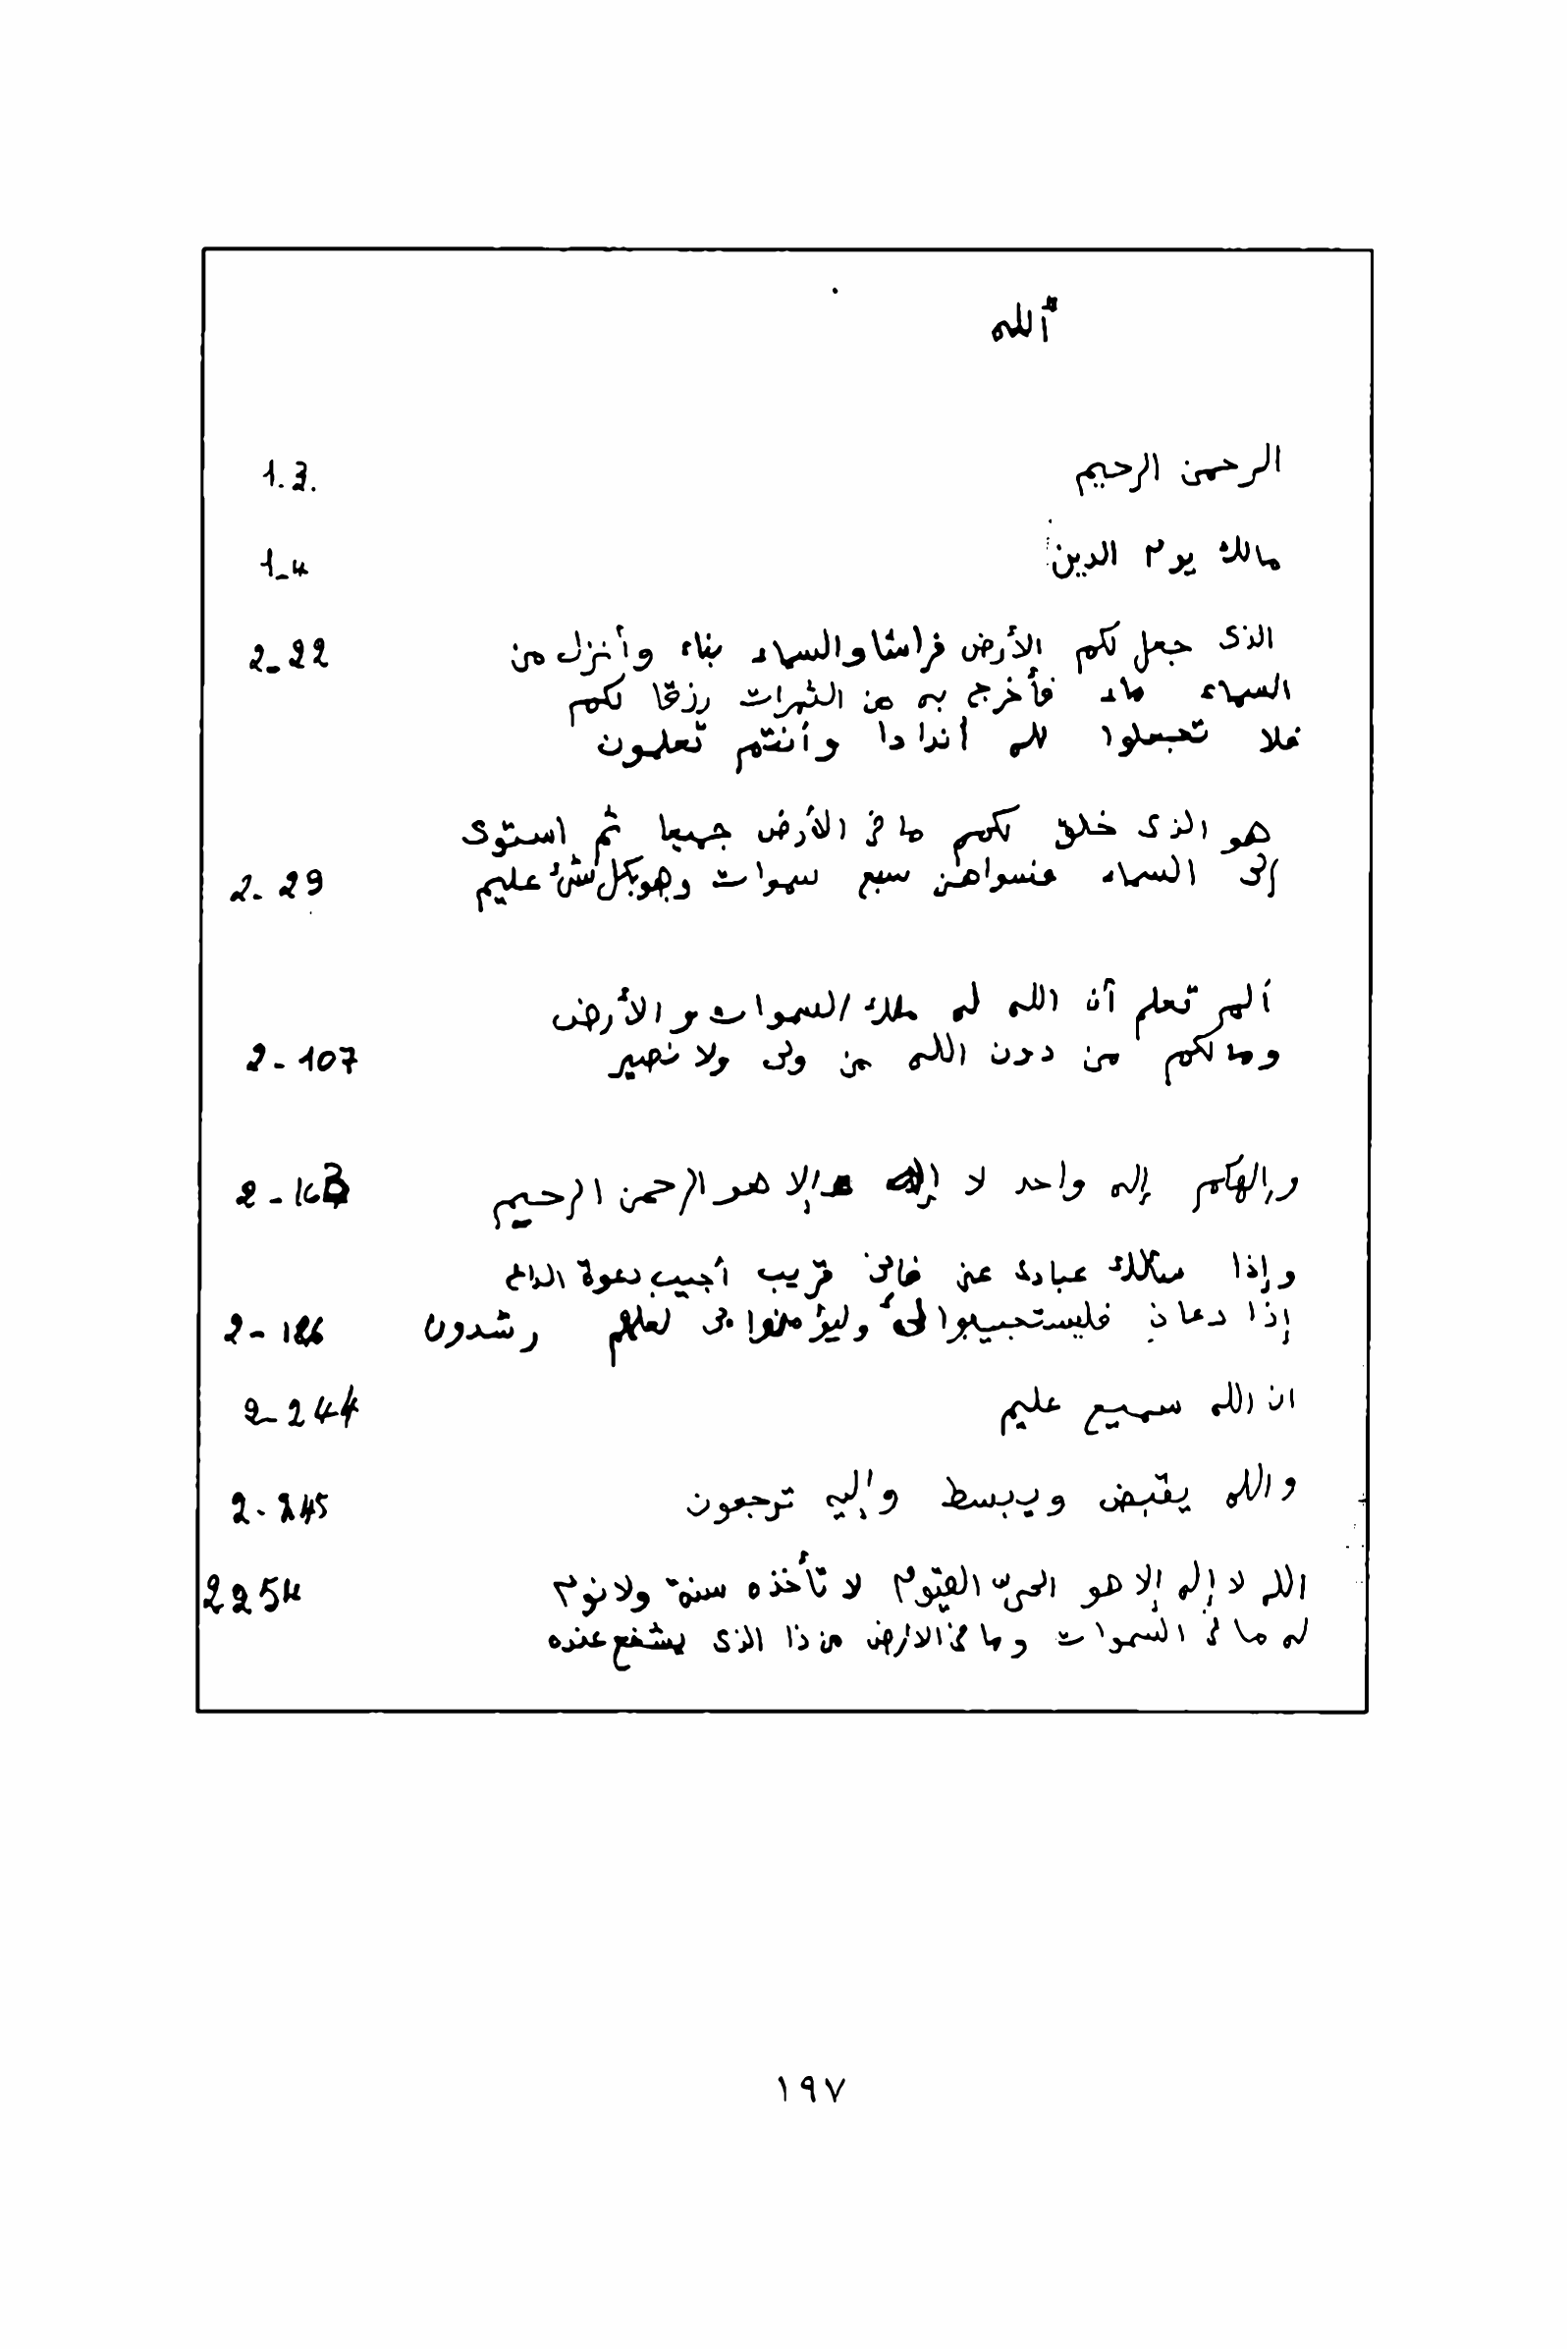 الله
الرحمن الرحيم 1.3.
مالك يوم الدين 1-4
الذى جعل لكم الأرض فراشا والسماء بناء وأنزل من 2-22
السماء ماء فأخرج به من الثمرات رزقا لكم
فلا تجعلوا لله أندادا وأنتم تعلمون
هو الذى خلق لكم ما فى الأرض جميعا ثم استوى
إلى السماء فسواهن سبع سموات وهو بكل شئ عليم 2-29
ألم تعلم أن الله له ملك السموات والأرض
وما لكم من دون الله من ولى ولا نصير 2-107
وإلهكم إله واحد لا إله إلا هو الرحمن الرحيم 2-163
وإذا سألك عبادى عنى فإنى قريب أجيب دعوة الداع
إذا دعانى فليستجيبوا لى وليؤمنوا بى لعلهم رشدون 2-186
ان الله سميع عليم 2-244
والله يقبض ويبسط وإليه ترجعون 2-245
الله لا إله إلا هو الحىّ القيّوم لا تأخذه سنة ولا نوم 2254
له ما فى السموات وما فى الارض من ذا الذى يشفع عنده
١٩٧